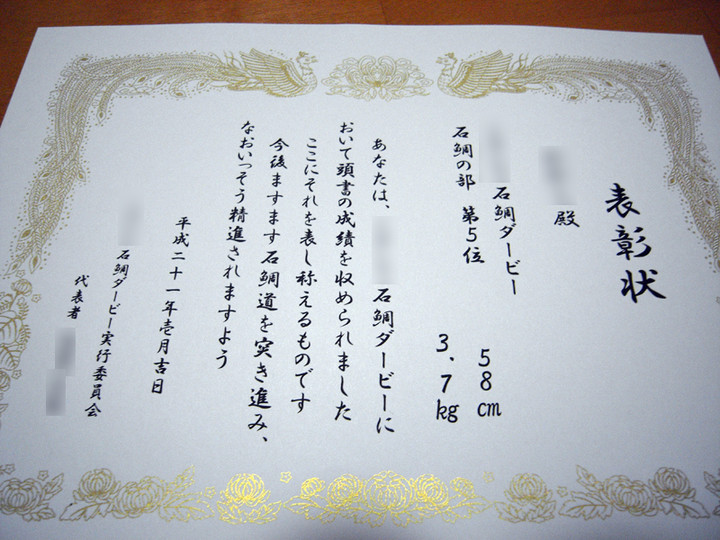 表彰状
殿
石鯛ダービー
石鯛の部 第5位
58cm
3.7kg
あなたは、
石鯛ダービーに
おいて頭書の成績を収められました
ここにそれを表し称えるものです
今後ますます石鯛道を突き進み、
なおいっそう精進されますよう
平成二十一年壱月吉日
石鯛ダービー実行委員会
代表者